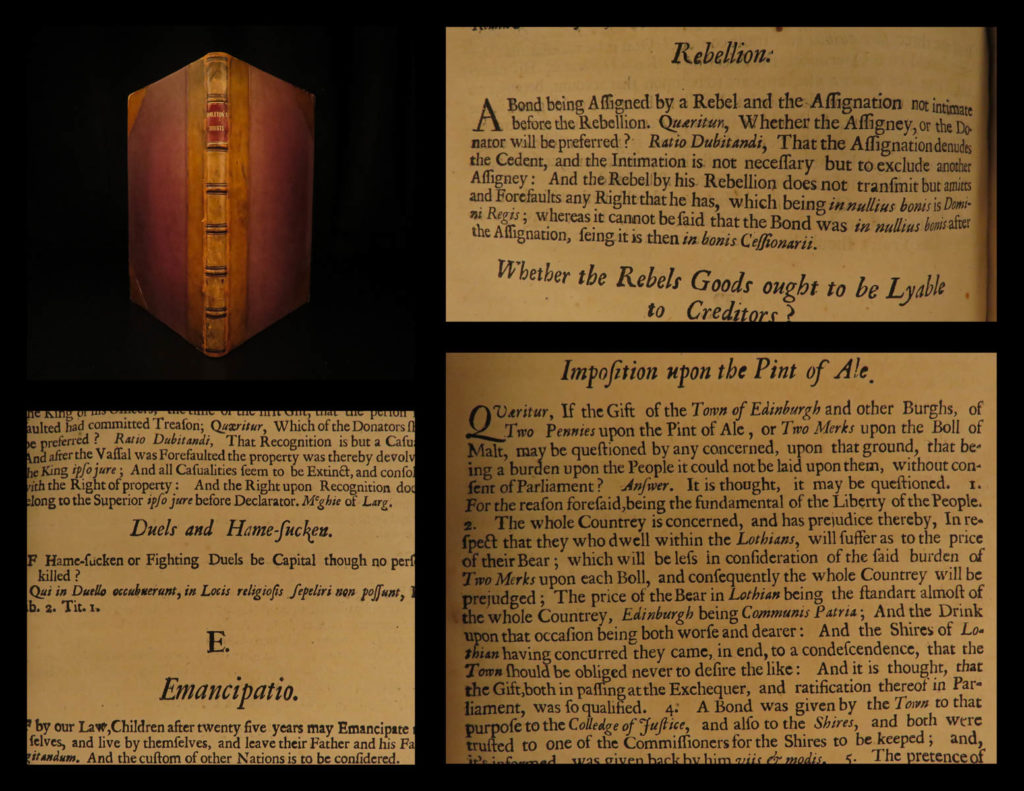 DOUBTS
Rebellion:
A Bond being Aſſigned by a Rebel and the Aſſignation not intimate
before the Rebellion. Quæritur, Whether the Aſſigney, or the Do-
nator will be preferred? Ratio Dubitandi, That the Aſſignation denudes
the Cedent, and the Intimation is not neceſſary but to exclude another
Aſſigney: And the Rebel by his Rebellion does not tranſmit but amitts
and Forefaults any Right that he has, which being in nullius bonis is Domi-
ni Regis; whereas it cannot be ſaid that the Bond was in nullius bonis after
the Aſſignation, ſeing it is then in bonis Ceſſionarii.
Whether the Rebels Goods ought to be Lyable
to Creditors?
he King or his Officers, the time of the firſt Gift, that the perſon
aulted had committed Treaſon; Quæritur, Which of the Donators ſh
be preferred? Ratio Dubitandi, That Recognition is but a Caſu
And after the Vaſſal was Forefaulted the property was thereby devolv
he King ipſo jure; And all Caſualities ſeem to be Extinct, and conſol
with the Right of property: And the Right upon Recognition doe
elong to the Superior ipſo jure before Declarator. Mcghie of Larg.
Duels and Hame-ſucken.
F Hame-ſucken or Fighting Duels be Capital though no perſ
killed?
Qui in Duello occubuerunt, in Locis religioſis ſepeliri non poſſunt,
b. 2. Tit. 1.
E.
Emancipatio.
F by our Law, Children after twenty five years may Emancipate
ſelves, and live by themſelves, and leave their Father and his Fa
gitandum. And the cuſtom of other Nations is to be conſidered.
Impoſition upon the Pint of Ale.
QVæritur, If the Gift of the Town of Edinburgh and other Burghs, of
Two Pennies upon the Pint of Ale, or Two Merks upon the Boll of
Malt, may be queſtioned by any concerned, upon that ground, that be-
ing a burden upon the People it could not be laid upon them, without con-
ſent of Parliament? Anſwer. It is thought, it may be queſtioned. 1.
For the reaſon foreſaid, being the fundamental of the Liberty of the People.
2. The whole Countrey is concerned, and has prejudice thereby, In re-
ſpect that they who dwell within the Lothians, will ſuffer as to the price
of their Bear; which will be leſs in conſideration of the ſaid burden of
Two Merks upon each Boll, and conſequently the whole Countrey will be
prejudged; The price of the Bear in Lothian being the ſtandart almoſt of
the whole Countrey, Edinburgh being Communis Patria; And the Drink
upon that occaſion being both worſe and dearer: And the Shires of Lo-
thian having concurred they came, in end, to a condeſcendence, that the
Town ſhould be obliged never to deſire the like: And it is thought, that
the Gift, both in paſſing at the Exchequer, and ratification thereof in Par-
liament, was ſo qualified. 4. A Bond was given by the Town to that
purpoſe to the Colledge of Juſtice, and alſo to the Shires, and both were
truſted to one of the Commiſſioners for the Shires to be keeped; and,
it's informed, was given back by him viis & modis. 5. The pretence of